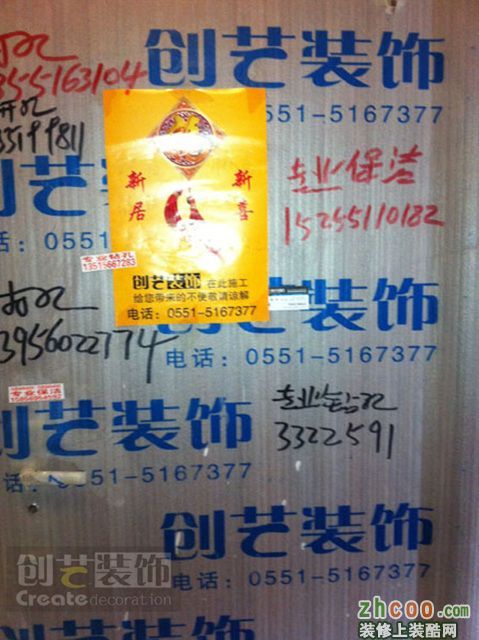 创艺装饰
0551-5167377
专业保洁
15255110182
新居
新喜
专业钻孔
13515667283
创艺装饰 在此施工
给您带来的不便敬请谅解
电话：0551-5167377
电话：0551
创艺装饰
电话：0551-5167377
3956022774
专业保洁
创艺装饰
话：0551-5167377
专业钻孔
3322591
创艺装饰
电话：0551-5167377
创艺装饰
Createdecoration
zhcoo.com
装修上装酷网